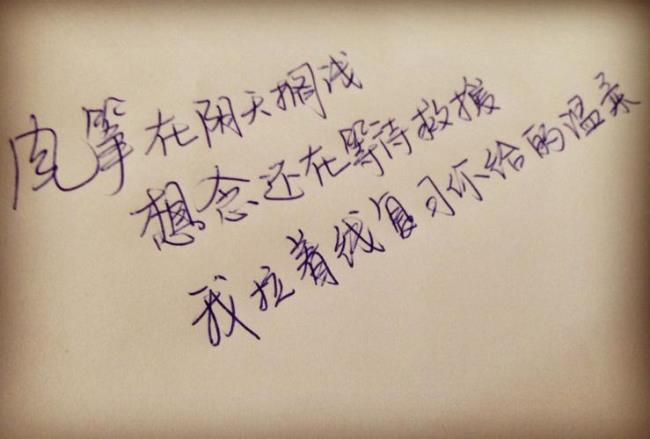 风筝在阴天搁浅
想念还在等待救援
我拉着线复习你给的温柔